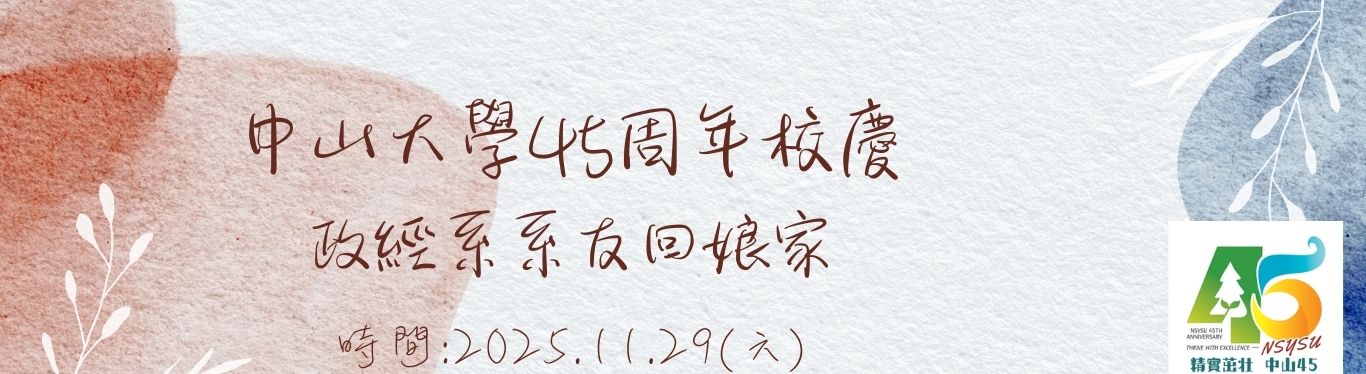 中山大學45周年校慶
政經系系友回娘家
時間:2025.11.29(六)
45
NSYSU 45TH
ANNIVERSARY
THRIVE WITH EXCELLENCE — NSYSU
精實茁壯 中山45